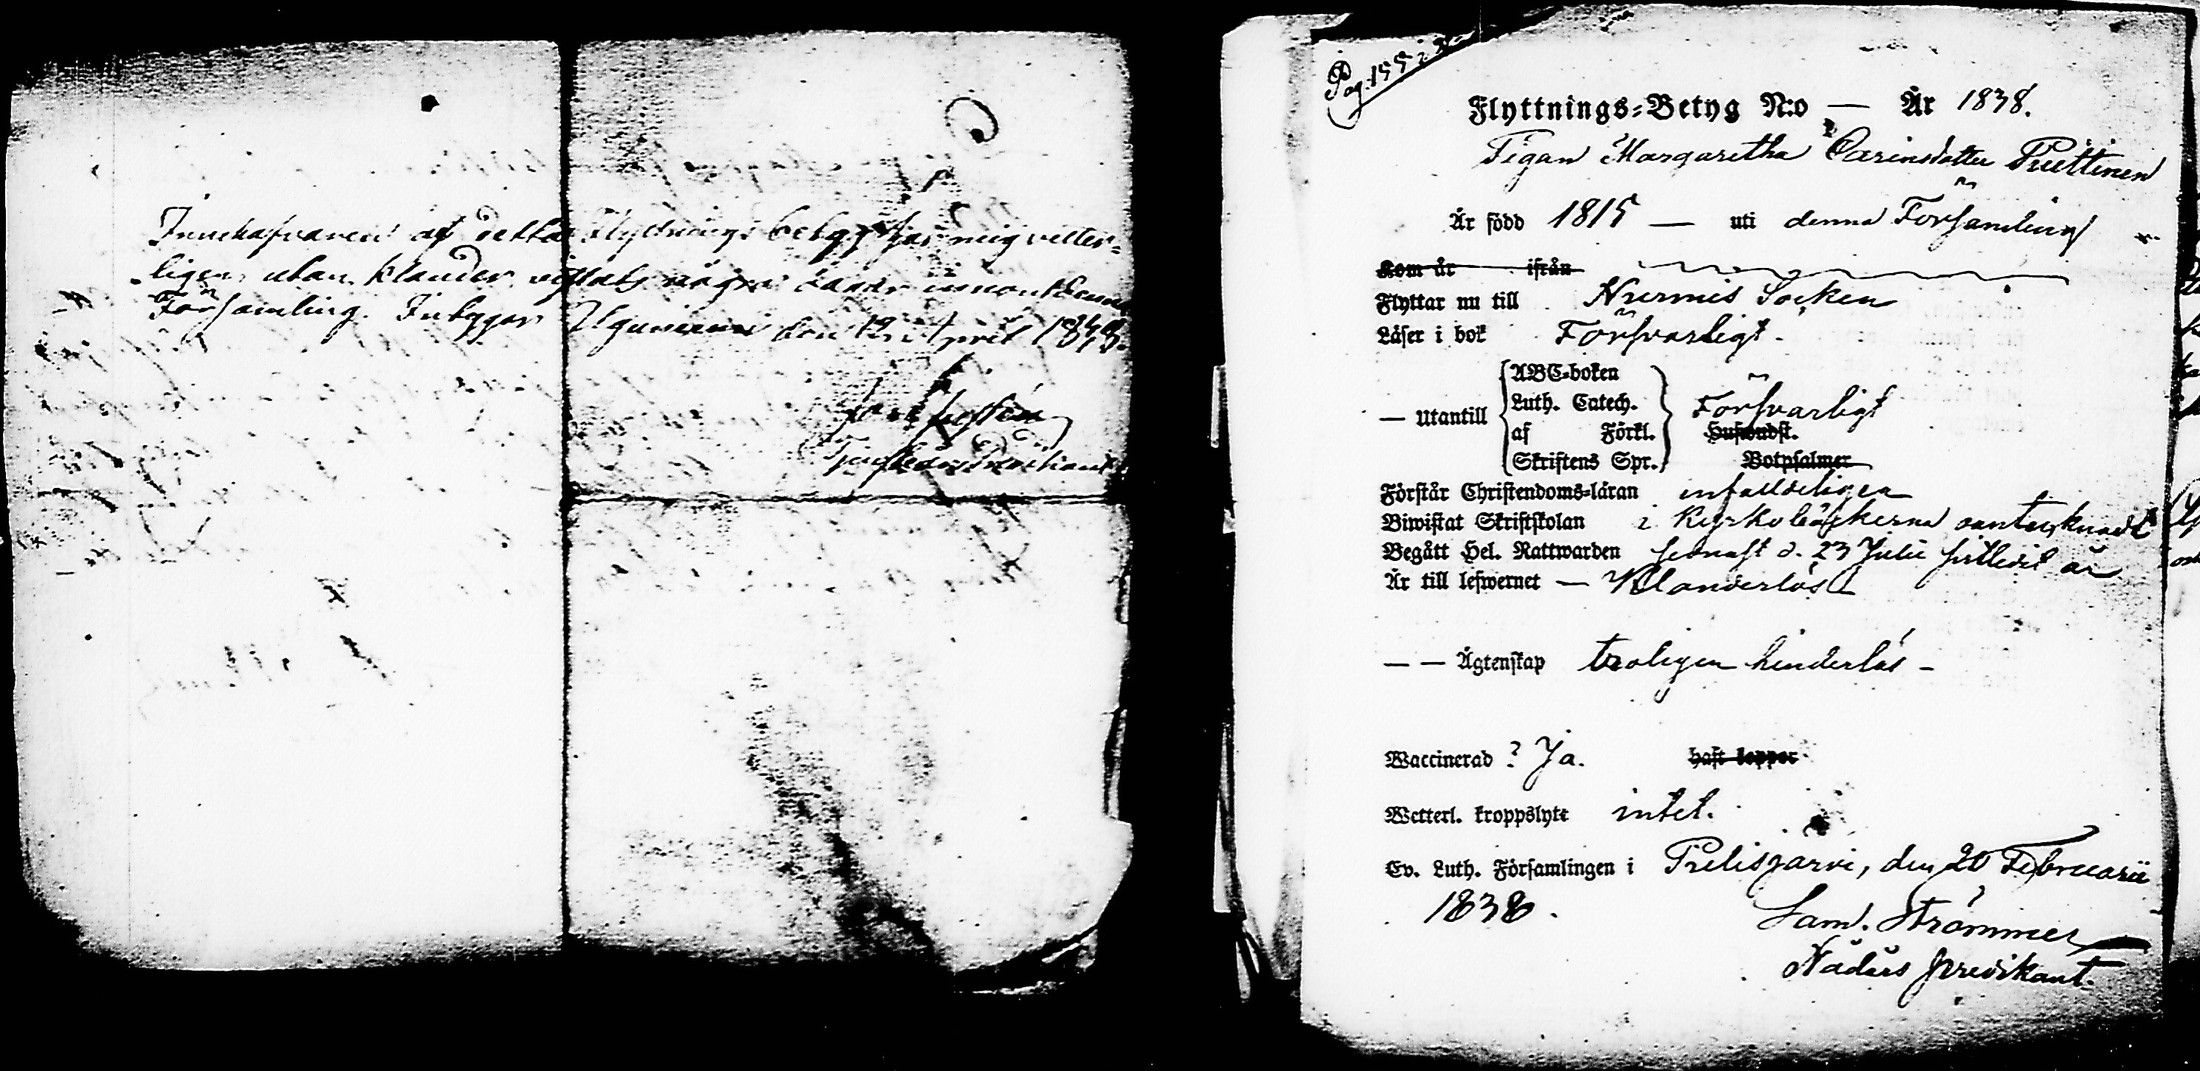 Innehafvaren af detta Flyttnings betyg har mig vetter-
ligen, utan klander vistats några öfver innom denna
Församling. Intygar den 12 April
Pag. 155
Flyttnings-Betyg N:o — År 1838.
Pigan Margaretha Carinsdotter Puittinen
Är född 1815 — uti denna Församling
Kom år ifrån
Flyttar nu till Nurmis Socken
Läser i bok Försvarligt.
— Utantill
ABC-boken
Luth. Catech.
af Förkl.
Skriftens Spr.
Försvarligt
Hustondst.
Botpsalmer
Förstår Christendoms-läran enfaldeligen
Biwistat Skriftskolan i Kyrkoböckerna oanteknadt
Begått Hel. Nattwarden senast d. 23 Julii sistledit år
Är till lefwernet — Klanderlös
— — Ägtenskap troligen hinderlös —
Waccinerad ? Ja. haft koppor
Wetterl. kroppslyte intet.
Ev. Luth. Församlingen i Pielisjärvi, den 20 Februarii
1838.
Sam. Strömmer
Nådårs predikant.